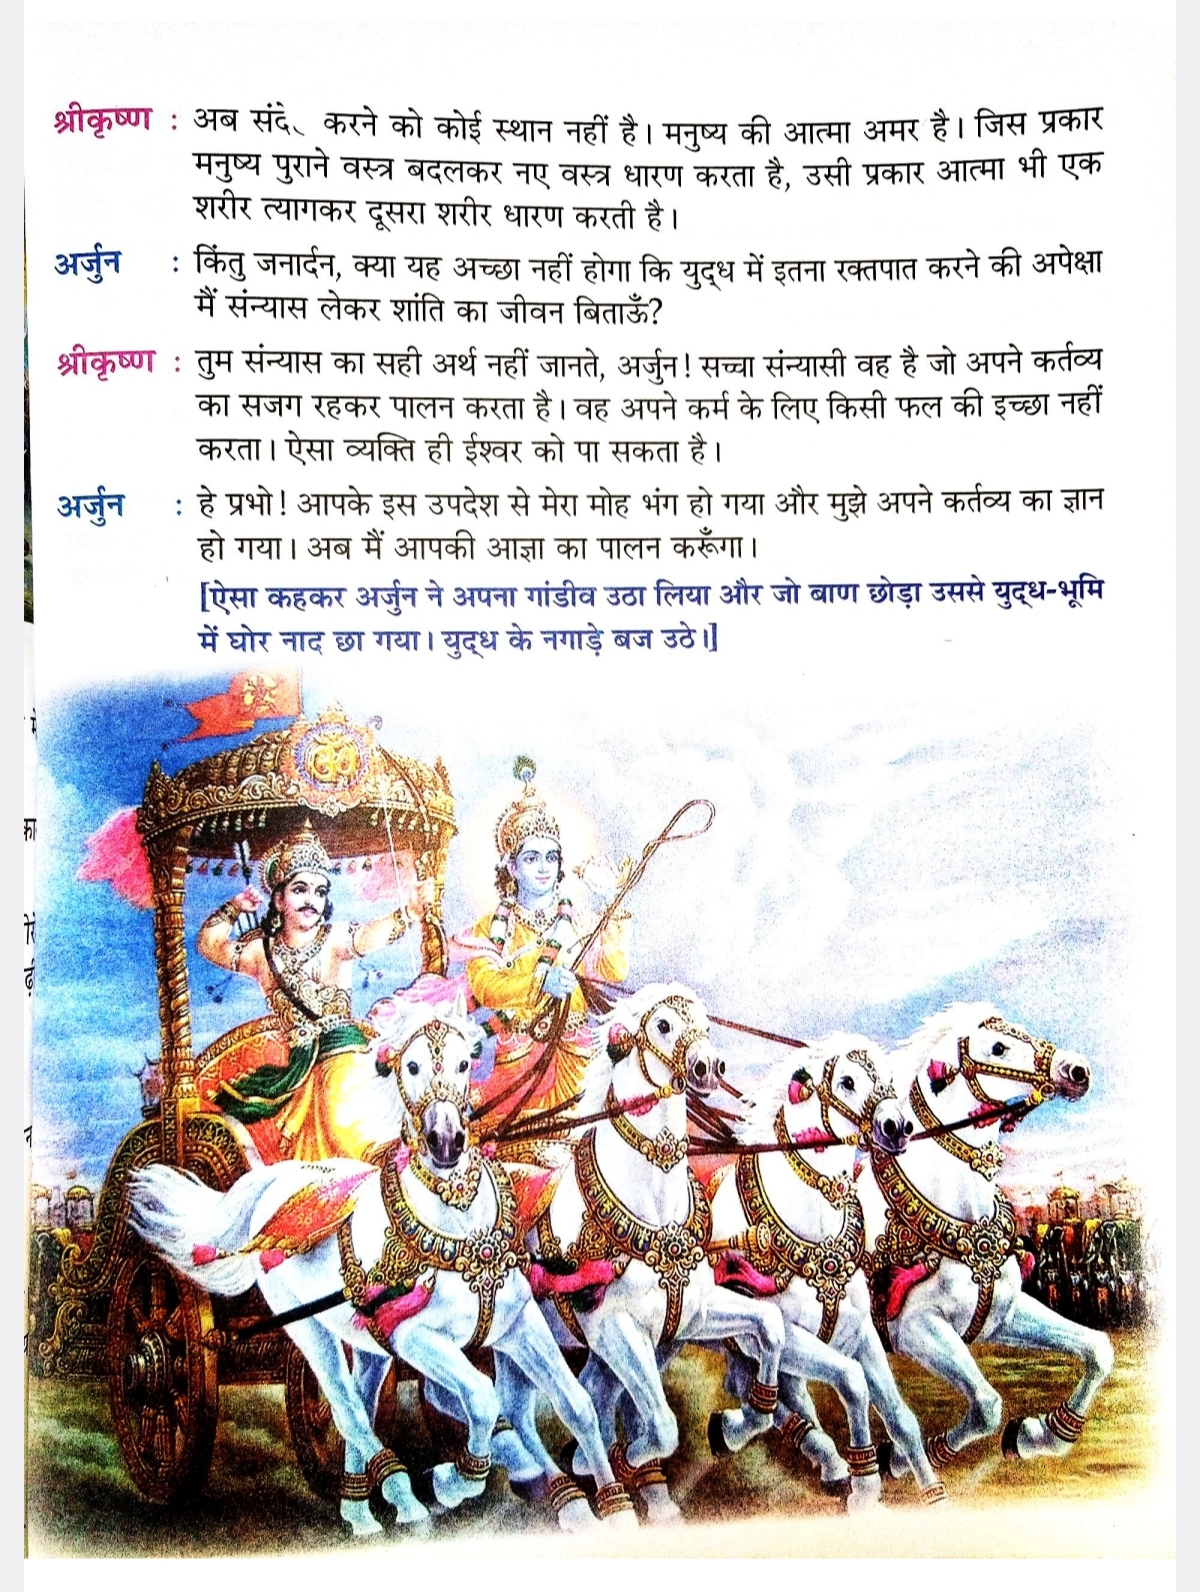 श्रीकृष्ण : अब संदे करने को कोई स्थान नहीं है। मनुष्य की आत्मा अमर है। जिस प्रकार
मनुष्य पुराने वस्त्र बदलकर नए वस्त्र धारण करता है, उसी प्रकार आत्मा भी एक
शरीर त्यागकर दूसरा शरीर धारण करती है।
अर्जुन : किंतु जनार्दन, क्या यह अच्छा नहीं होगा कि युद्ध में इतना रक्तपात करने की अपेक्षा
मैं संन्यास लेकर शांति का जीवन बिताऊँ?
श्रीकृष्ण : तुम संन्यास का सही अर्थ नहीं जानते, अर्जुन! सच्चा संन्यासी वह है जो अपने कर्तव्य
का सजग रहकर पालन करता है। वह अपने कर्म के लिए किसी फल की इच्छा नहीं
करता। ऐसा व्यक्ति ही ईश्वर को पा सकता है।
अर्जुन : हे प्रभो! आपके इस उपदेश से मेरा मोह भंग हो गया और मुझे अपने कर्तव्य का ज्ञान
हो गया। अब मैं आपकी आज्ञा का पालन करूँगा।
[ऐसा कहकर अर्जुन ने अपना गांडीव उठा लिया और जो बाण छोड़ा उससे युद्ध-भूमि
में घोर नाद छा गया। युद्ध के नगाड़े बज उठे।]
ॐ